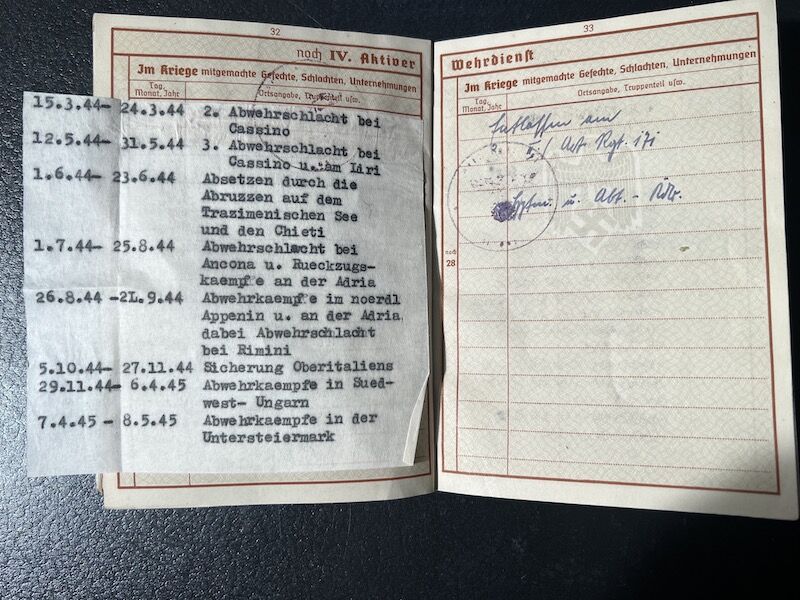 32
noch IV. Aktiver
Im Kriege mitgemachte Gefechte, Schlachten, Unternehmungen
Tag, Monat, Jahr
Ortsangabe, Truppenteil usw.
15.3.44- 24.3.44 2. Abwehrschlacht bei
Cassino
12.5.44- 31.5.44 3. Abwehrschlacht bei
Cassino u. am Idri
1.6.44- 23.6.44 Absetzen durch die
Abruzzen auf dem
Trazimenischen See
und den Chieti
1.7.44- 25.8.44 Abwehrschlacht bei
Ancona u. Rueckzugs-
kaempfe an der Adria
26.8.44 -2L.9.44 Abwehrkaempfe im noerdl
Appenin u. an der Adria,
dabei Abwehrschlacht
bei Rimini
5.10.44- 27.11.44 Sicherung Oberitaliens
29.11.44- 6.4.45 Abwehrkaempfe in Sued-
west- Ungarn
7.4.45 - 8.5.45 Abwehrkaempfe in der
Untersteiermark
33
Wehrdienst
Im Kriege mitgemachte Gefechte, Schlachten, Unternehmungen
Tag, Monat, Jahr
Ortsangabe, Truppenteil usw.
Entlassen am
/ Art. Rgt. 171
u. Abt. - Kdr.
noch
28